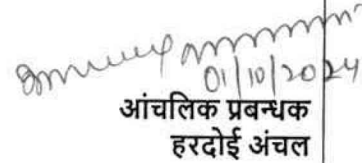 01/10/2024
आंचलिक प्रबन्धक
हरदोई अंचल